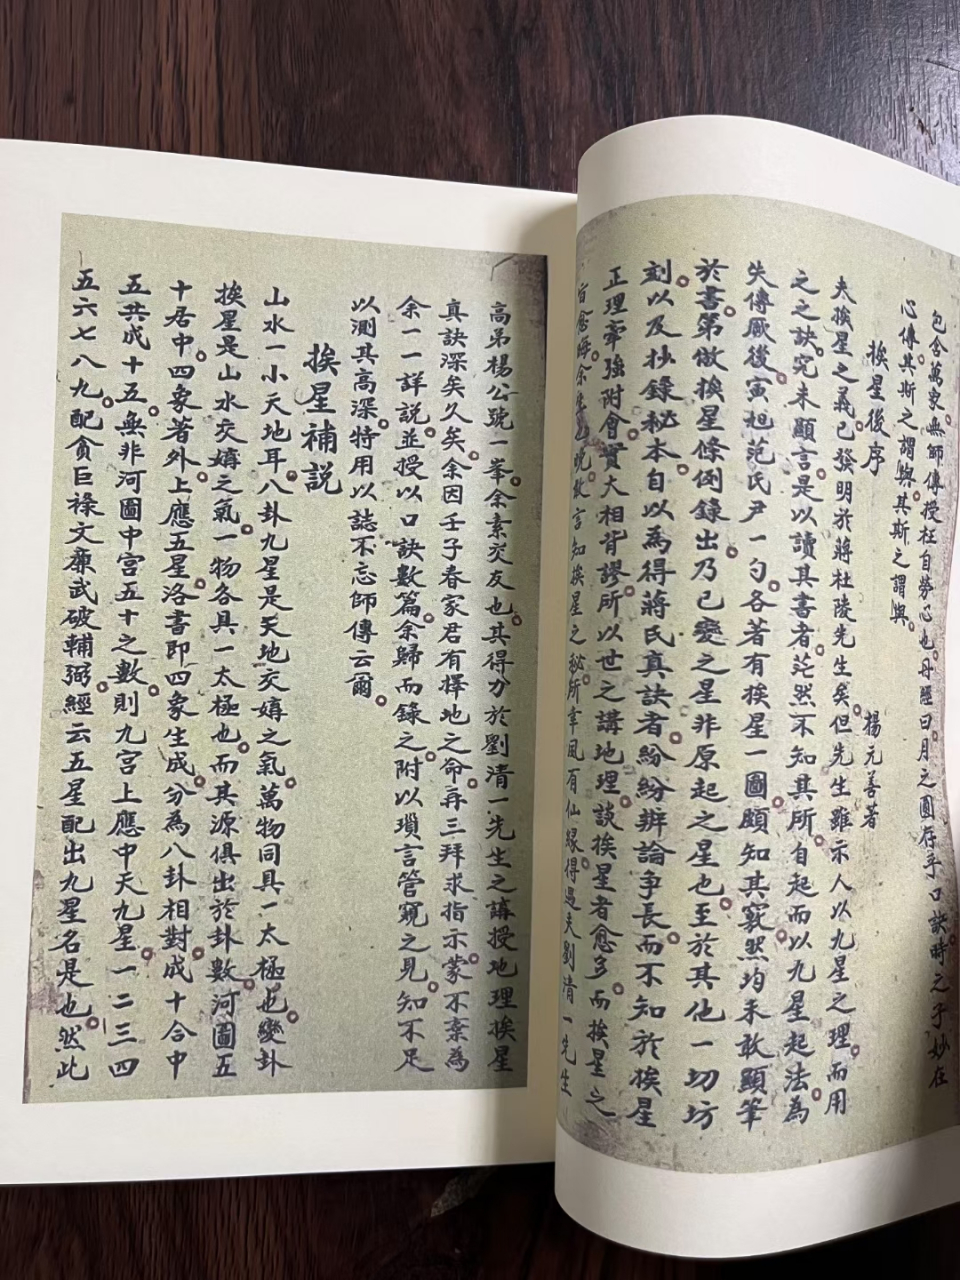 包含萬象無師傳授枉自勞心也丹經曰月之圓存乎口訣時之子妙在
心傳其斯之謂與其斯之謂與
挨星後序
楊元善著
夫挨星之義已發明於蔣杜陵先生矣但先生雖示人以九星之理而用
之之訣究未顯言是以讀其書者茫然不知其所自起而以九星起法為
失傳厥後寅旭范氏尹一勺各著有挨星一圖頗知其竅然均未敢顯筆
於書第做挨星條例錄出乃已變之星非原起之星也至於其他一切坊
刻以及抄錄秘本自以為得蔣氏真訣者紛紛辨論争長而不知於挨星
正理牽強附會實大相背謬所以世之講地理談挨星者愈多而挨星之
旨愈晦余生也晚敢言知挨星之秘所幸夙有仙緣得遇夫劉清一先生
高弟楊公號一峯余素交友也其得分於劉清一先生之講授地理挨星
真訣深矣久矣余因壬子春家君有擇地之命再三拜求指示蒙不棄為
余一一詳說並授以口訣數篇余歸而錄之附以瑣言管窺之見知不足
以測其高深特用以誌不忘師傳云爾
挨星補説
山水一小天地耳八卦九星是天地交媾之氣萬物同具一太極也變卦
挨星是山水交媾之氣一物各具一太極也而其源俱出於卦數河圖五
十居中四象著外上應五星洛書即四象生成分為八卦相對成十合中
五共成十五無非河圖中宮五十之數則九宮上應中天九星一二三四
五六七八九配貪巨祿文廉武破輔弼經云五星配出九星名是也然此